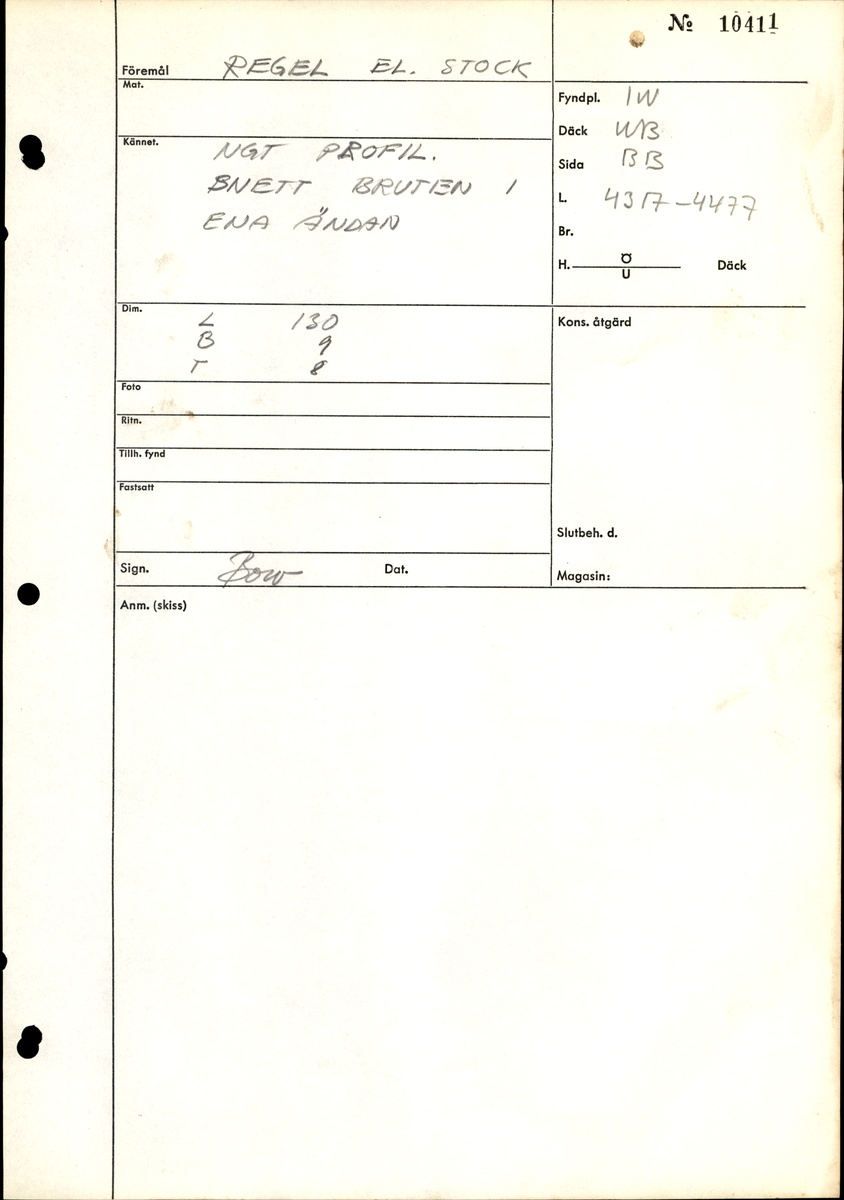 № 10411
Föremål REGEL EL. STOCK
Mat.
Fyndpl. IW
Däck UB
Sida BB
L. 4317-4477
Br.
H. Ö Däck
U
Kännet. NGT PROFIL.
SNETT BRUTEN I
ENA ÄNDAN
Dim.
L 130
B 9
T 8
Kons. åtgärd
Foto
Ritn.
Tillh. fynd
Fastsatt
Slutbeh. d.
Sign. Bow Dat.
Magasin:
Anm. (skiss)